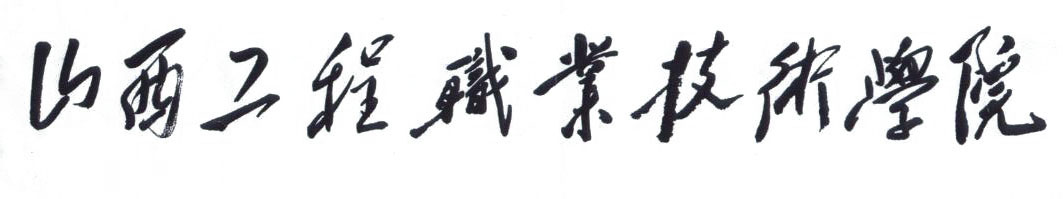 山西工程職業技術學院